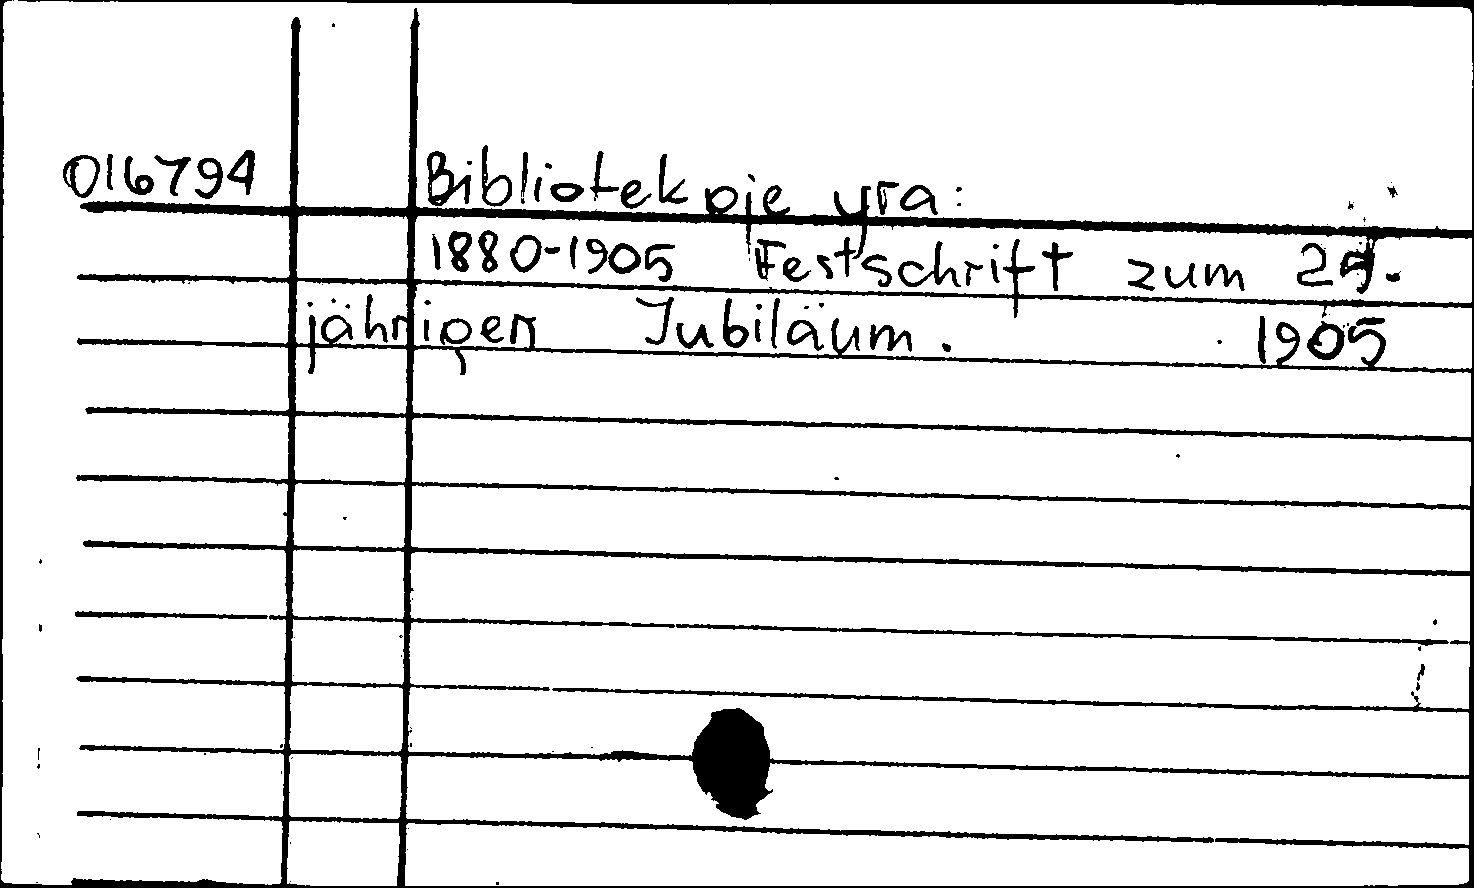 016794 Bibliotek
1880-1905 Festschrift zum 25.
jährigen Jubiläum. 1905